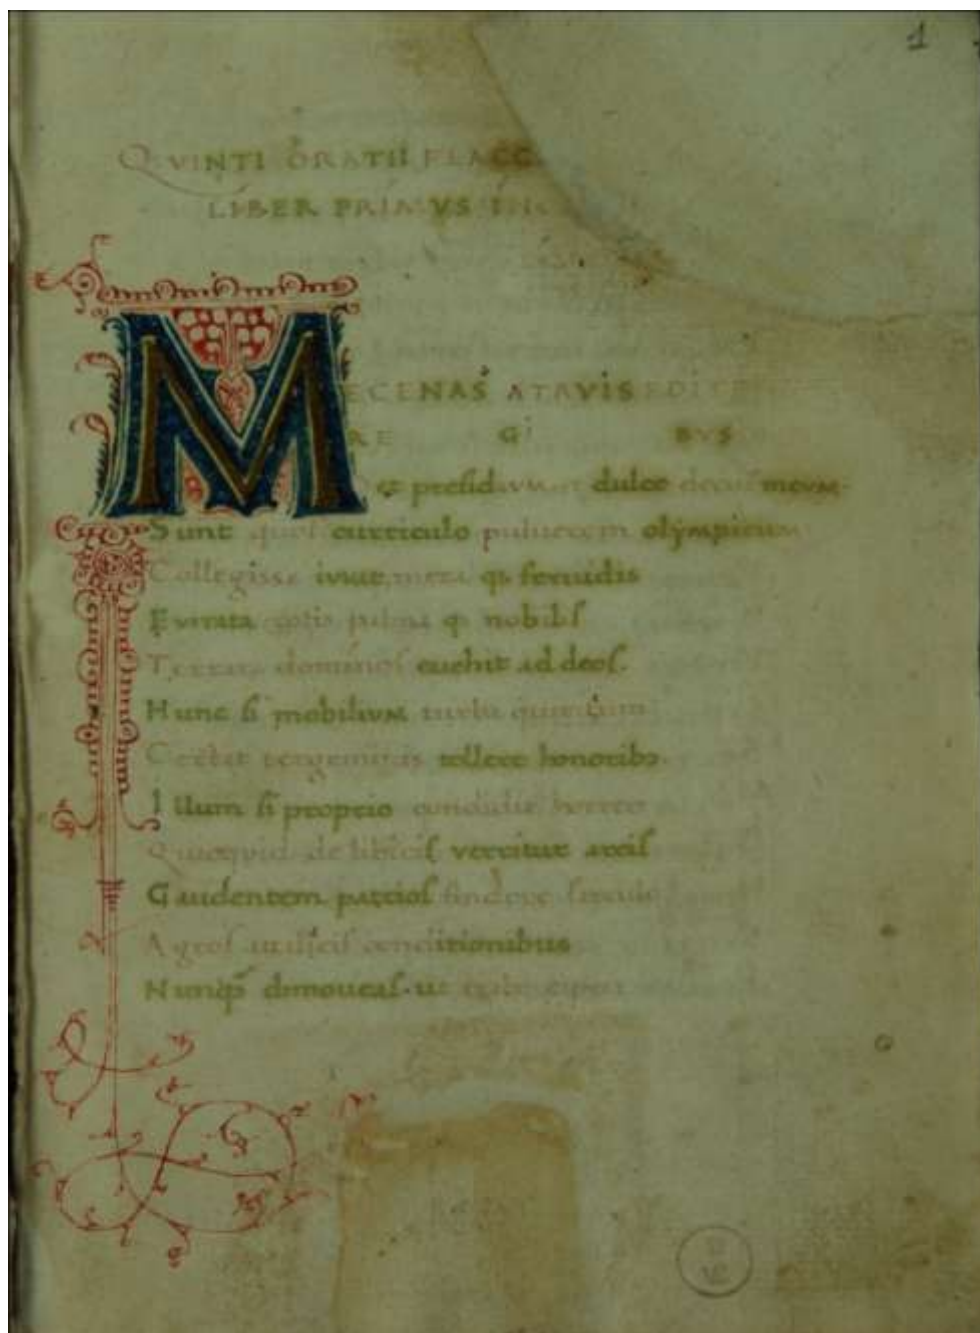 1
QVINTI ORATII FLACC
LIBER PRIMVS INC
MECENAS ATAVIS EDITE
RE GI BVS
O et presidium et dulce decuſ meum.
Sunt quoſ curriculo puluerem olýmpicum
Collegisse iuuat, meta qȝ feruidis
Euitata rotis palma qȝ nobiliſ
Terraru dominoſ euehit ad deoſ.
Hunc ſi mobilium turba quiritium
Certat tergeminis tollere honoribꝰ.
Illum ſi proprio condidit horreo
Quicquid de libiciſ verritur areiſ
Gaudentem patrioſ findere ſarculo
Agroſ attaliciſ conditionibus
Nunqȝ dimoueaſ. ut trabe cipria